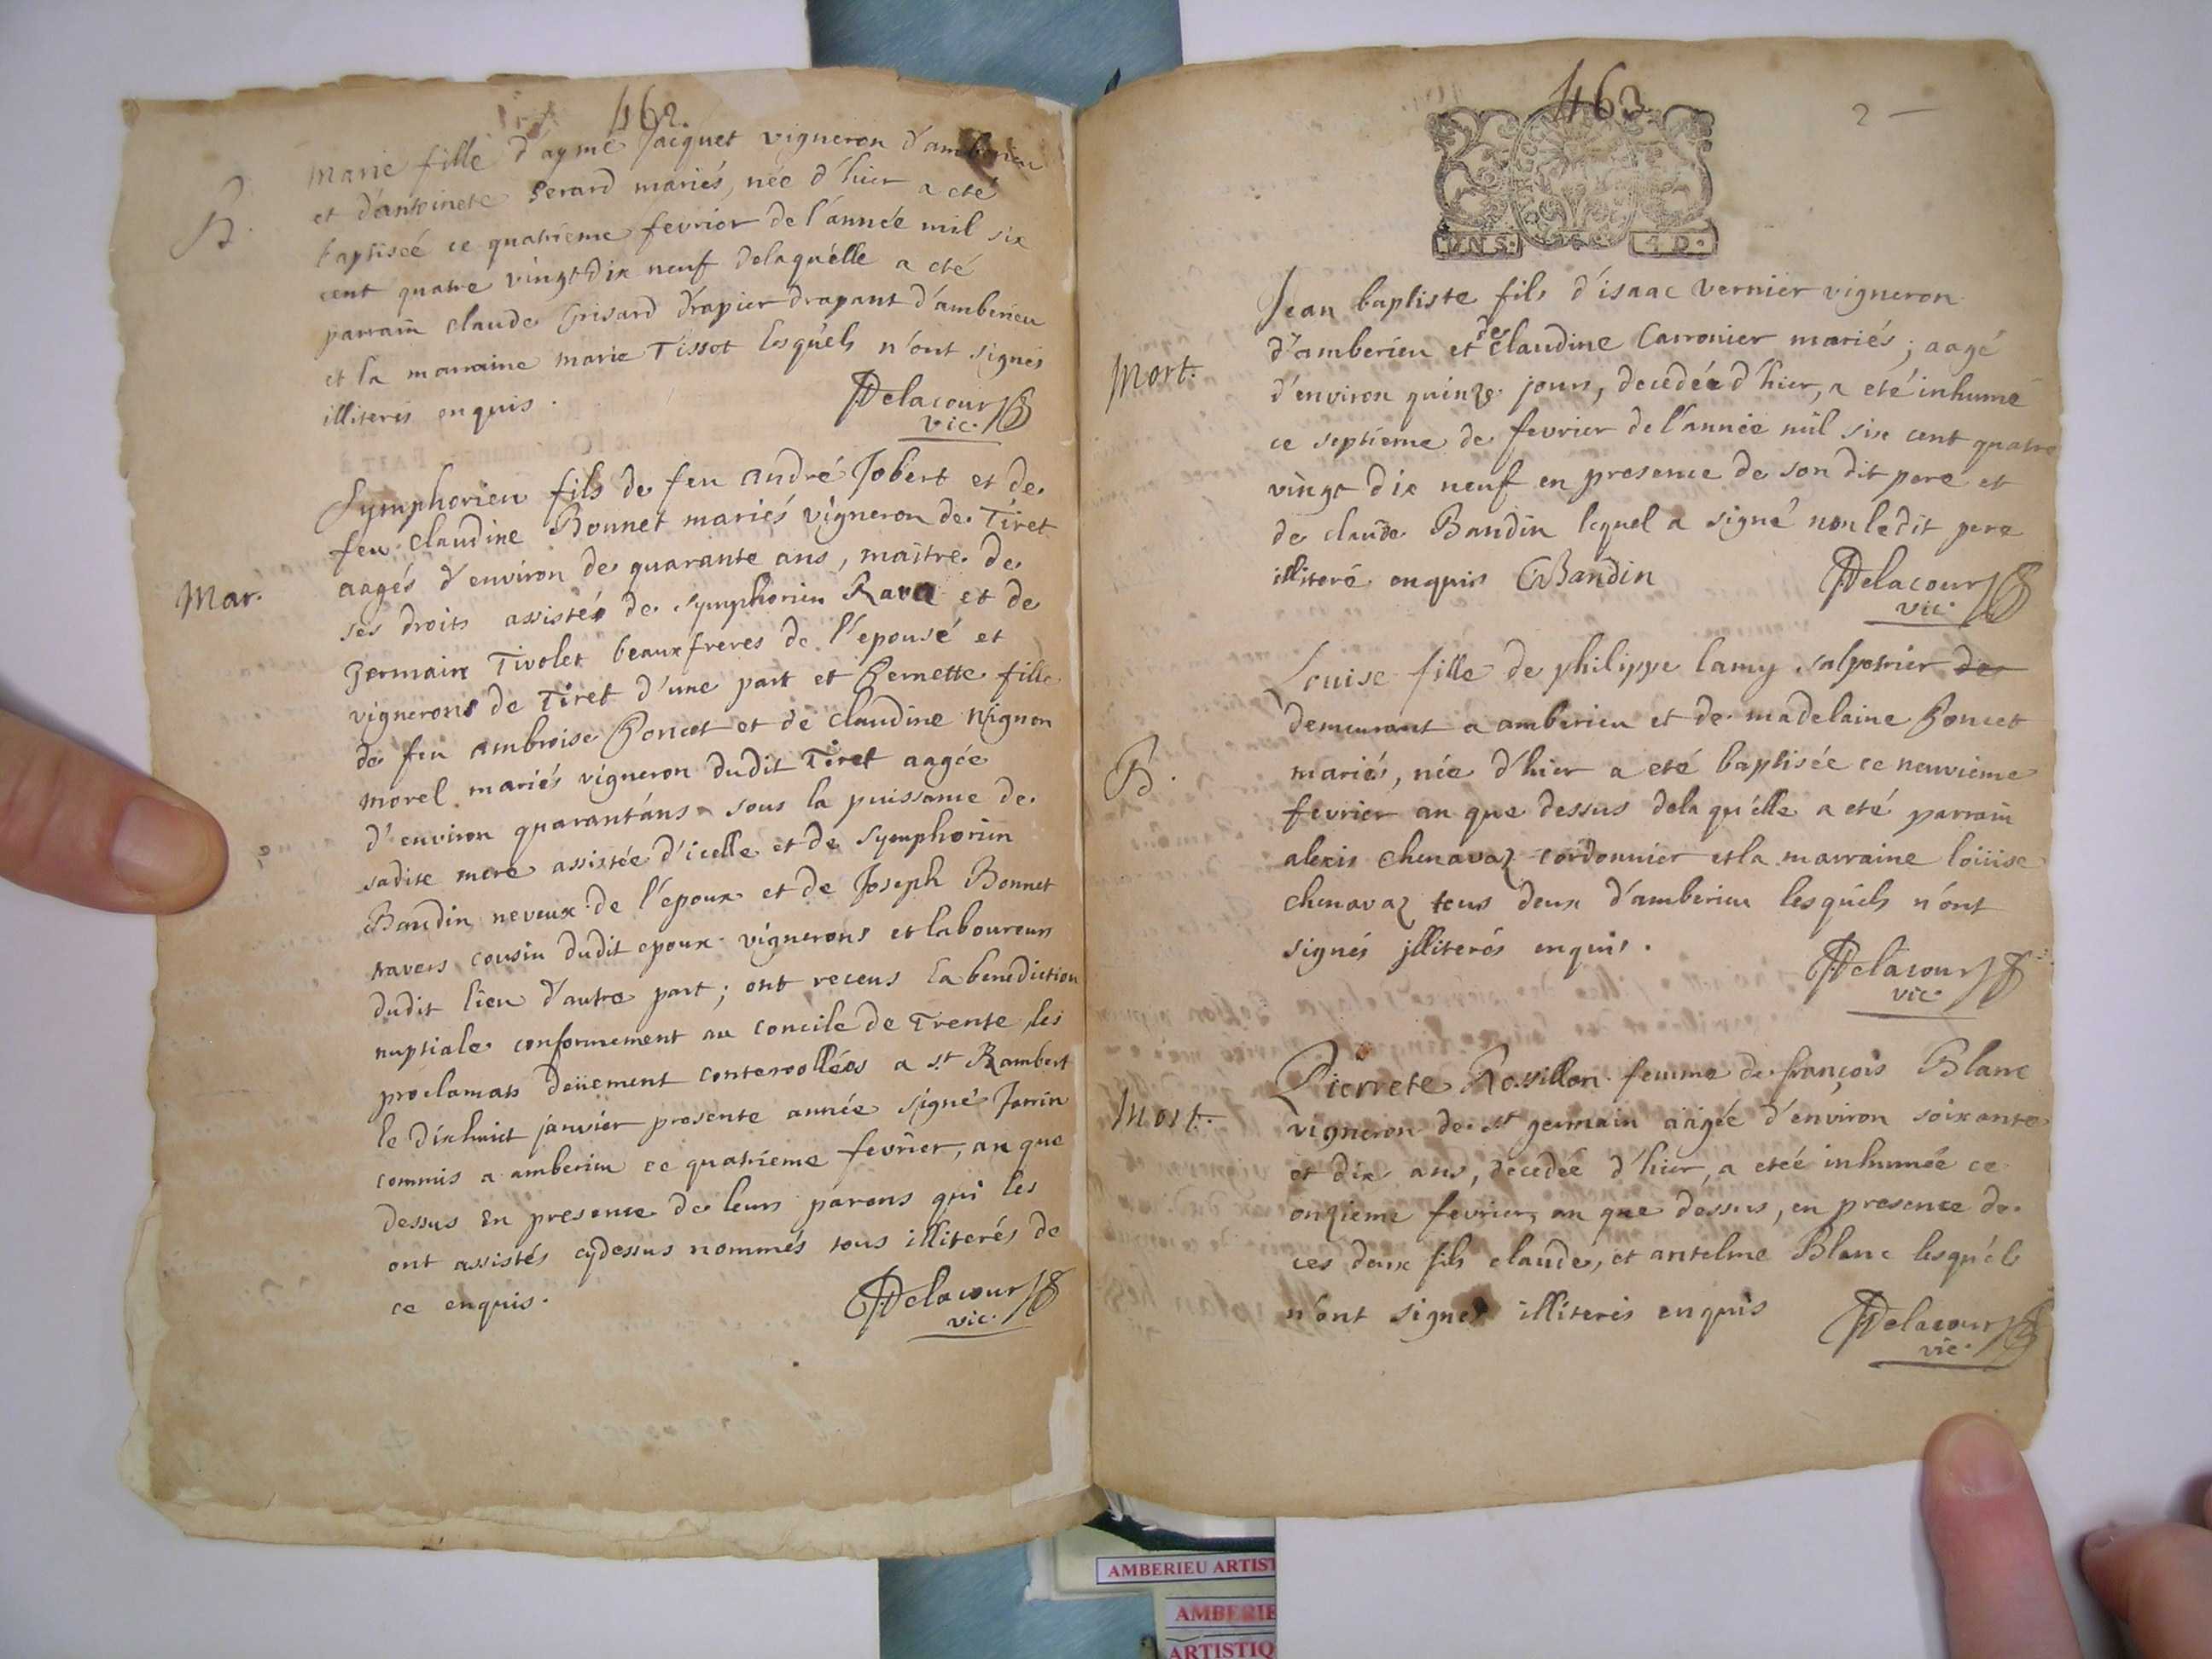 462.
B.
marie fille d'aymé Jacquet vigneron d'amberieu
et d'antoinete Serard mariés, née d'hier a eté
baptiseé ce quatrieme fevrier de l'année mil six
cent quatre vingt dix neuf delaquélle a eté
parrain claude Grisard drapier drapant d'amberieu
et la marraine marie Tissot lesquéls n'ont signés
illiterés enquis.
Delacour
vic.
Mar.
Symphorien fils de feu andré Jobert et de
feu claudine Bonnet mariés vigneron de Tiret
aagés d'environ de quarante ans, maitre de
ses droits assistés de symphorien Rava et de
germain Tivolet beaux freres de l'epousé et
vignerons de Tiret d'une part et Pernette fille
de feu ambroise Poncet et de claudine Nignon
morel mariés vigneron dudit Tiret aagée
d'environ quarant'ans sous la puissance de
sadite mere assistée d'icelle et de Symphorien
Baudin neveux de l'époux et de Joseph Bonnet
travers cousin dudit epoux vignerons et laboureurs
dudit lieu d'autre part; ont receus la benediction
nuptiale conformement au concile de Trente les
proclamats deüement conterollées a st Rambert
le dixhuict janvier presente année signé Jarrin
commis a amberieu ce quatrieme fevrier, an que
dessus en presence de leurs parens qui les
ont assistés cydessus nommés tous illiterés de
ce enquis.
Delacour
vic.
463
2 —
DNS. 4 D.
Mort.
Jean baptiste fils d'isaac vernier vigneron
d'amberieu et de claudine Carronier mariés; aagé
d'environ quinze jours, decedée d'hier, a eté inhumé
ce septieme de fevrier de l'année mil six cent quatre
vingt dix neuf en presence de son dit pere et
de claude Baudin lequel a signé non ledit pere
illiteré enquis CBaudin
Delacour
vic.
B.
Louise fille de philippe lamy salpetrier de
demeurant a amberieu et de madelaine Poncet
mariés, née d'hier a eté baptisée ce neuvieme
fevrier an que dessus dela quélle a eté parrain
alexis chenavaz cordonnier et la marraine loüise
chenavaz tous deux d'amberieu lesquéls n'ont
signés illiterés enquis.
Delacour
vic.
Mort.
Pierrete Rossillon femme de françois Blanc
vigneron de st germain aagée d'environ soixante
et dix ans, decedée d'hier, a eteé inhumée ce
onzieme fevrier, an que dessus, en presence de
ces deux fils claude, et antelme Blanc lesquéls
n'ont signes illiteres enquis
Delacour
vic.
AMBERIEU ARTIST
AMBERIE
ARTISTIQ